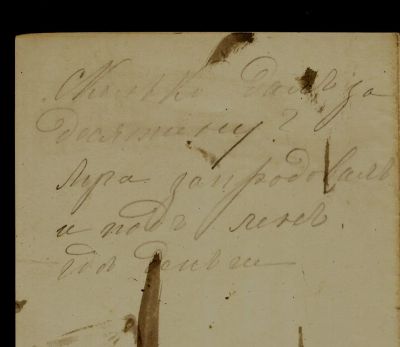 Сколько далъ за
десятину?
Луга запродовалъ
и подъ ленъ.
где деньги